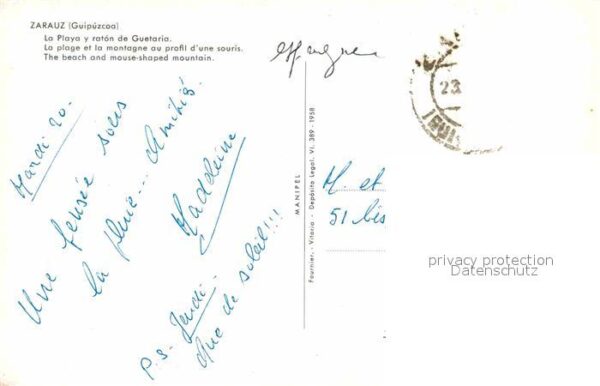 ZARAUZ (Guipúzcoa)
La Playa y ratón de Guetaria.
La plage et la montagne au profil d'une souris.
The beach and mouse-shaped mountain.
Mardi 20.
Une pensée sous
la pluie... Amitiés
Madeleine
P.S. Jeudi.
Que de soleil!!!
MANIPEL
Fournier. - Vitoria - Depósito Legal. VI. 389 - 1958
Espagne
23.
M. et
51 bis
privacy protection
Datenschutz